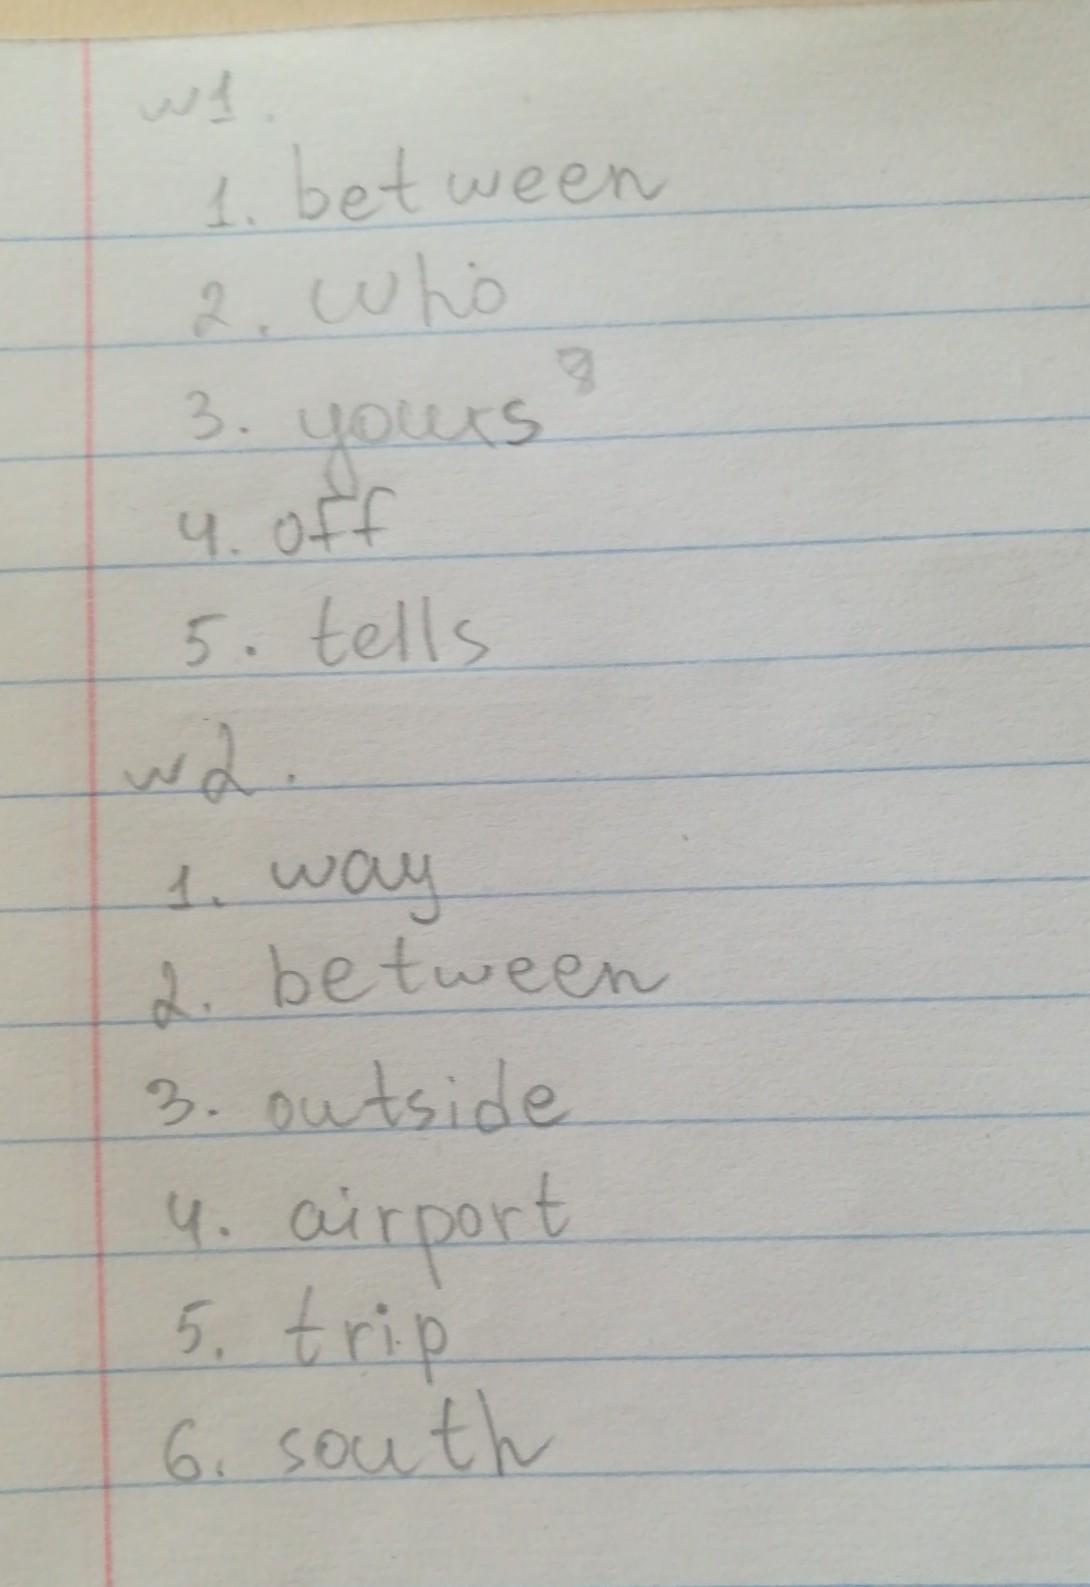 w1.
1. between
2. who
3. yours
4. off
5. tells
w2.
1. way
2. between
3. outside
4. airport
5. trip
6. south